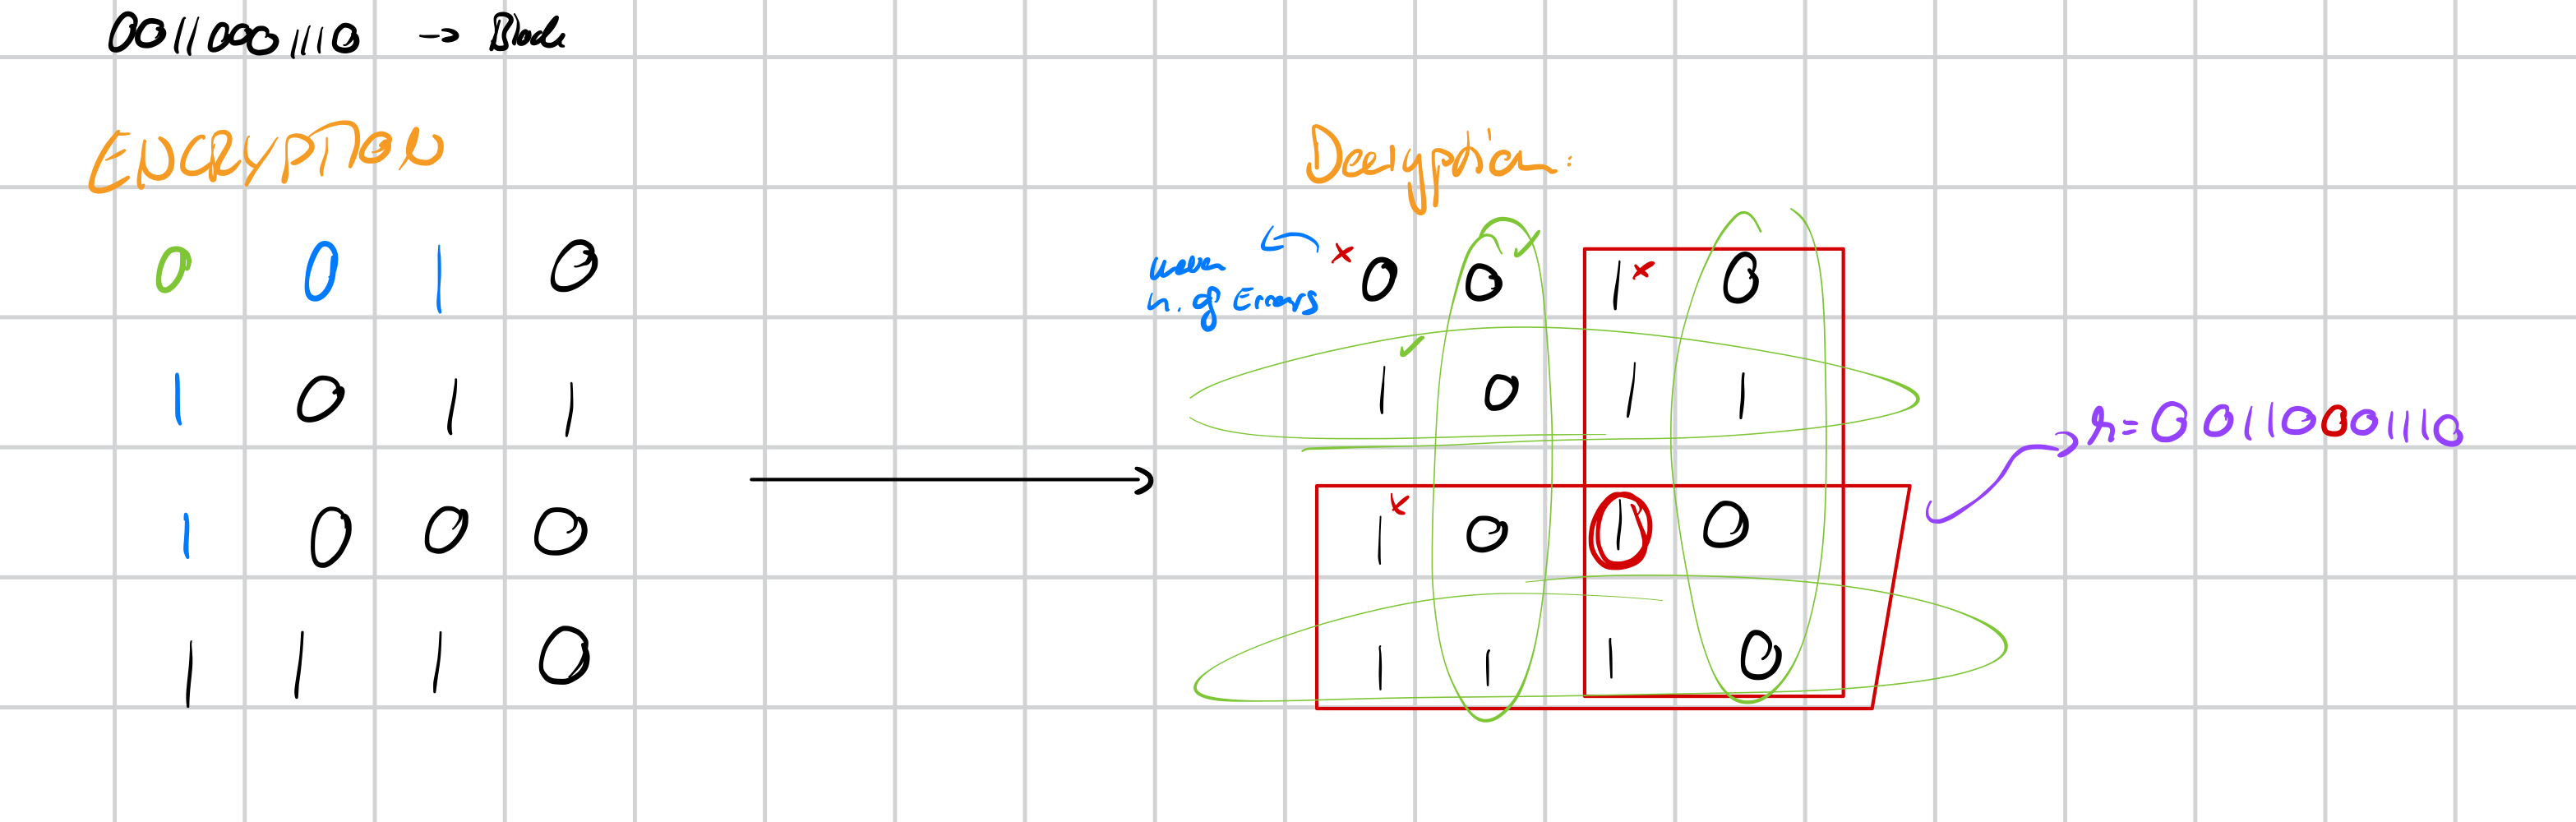 00110001110 → Block
ENCRYPTION
Decryption:
0 0 1 0
1 0 1 1
1 0 0 0
1 1 1 0
uneven
n. of Errors
× 0 0 ✓ 1 × 0
1 ✓ 0 1 1
1 × 0 1 0
1 1 1 0
r = 00110001110